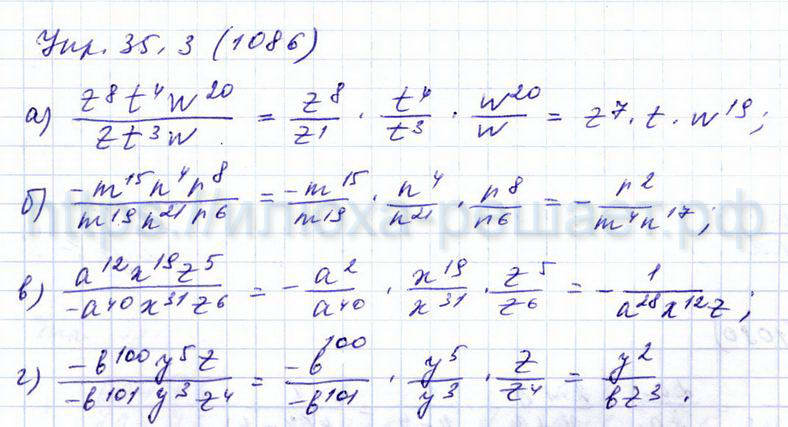 Упр. 35.3 (1086)
а) z⁸t⁴w²⁰/zt³w = z⁸/z¹ · t⁴/t³ · w²⁰/w = z⁷ · t · w¹⁹;
б) -m¹⁵n⁴r⁸/m¹⁹n²¹r⁶ = -m¹⁵/m¹⁹ · n⁴/n²¹ · r⁸/r⁶ = - r²/m⁴n¹⁷;
в) a¹²x¹⁹z⁵/-a⁴⁰x³¹z⁶ = - a²/a⁴⁰ · x¹⁹/x³¹ · z⁵/z⁶ = - 1/a²⁸x¹²z;
г) -b¹⁰⁰y⁵z/-b¹⁰¹y³z⁴ = -b¹⁰⁰/-b¹⁰¹ · y⁵/y³ · z/z⁴ = y²/bz³.